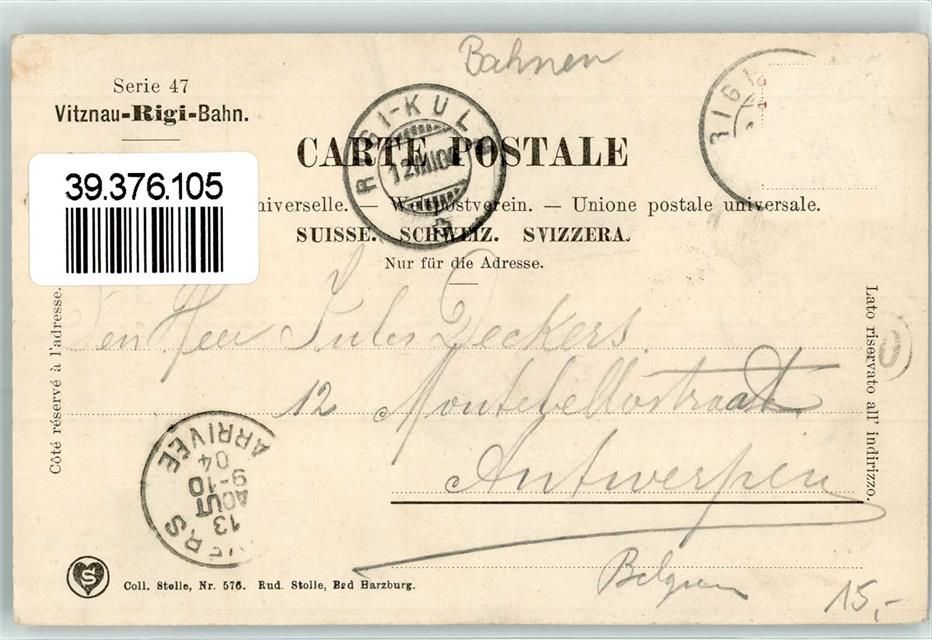 Bahnen
Serie 47
Vitznau-Rigi-Bahn.
RIGI-KUL
12.VIII.04
RIGI
CARTE POSTALE
39.376.105
niverselle. — Weltpostverein. — Unione postale universale.
SUISSE. SCHWEIZ. SVIZZERA.
Nur für die Adresse.
Côté réservé à l'adresse.
Lato riservato all' indirizzo.
Den Heer Jules Deckers.
12 Montebellostraat
Antwerpen
Belgien
0
ARRIVÉE
04
9-10
AOUT
13
VERS
S
Coll. Stolle, Nr. 576. Rud. Stolle, Bad Harzburg.
15,-